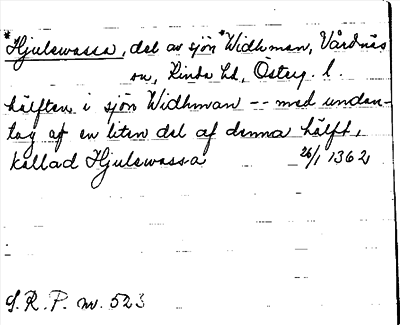 *Hjulswassa, del av sjön *Widhman, Vårdnäs
sn, Kinda hd, Österg. l.
hälften i sjön Widhman -- med undan-
tag af en liten del af denna hälft,
kallad Hjulswassa 26/1 1362
S.R.P. nr. 523